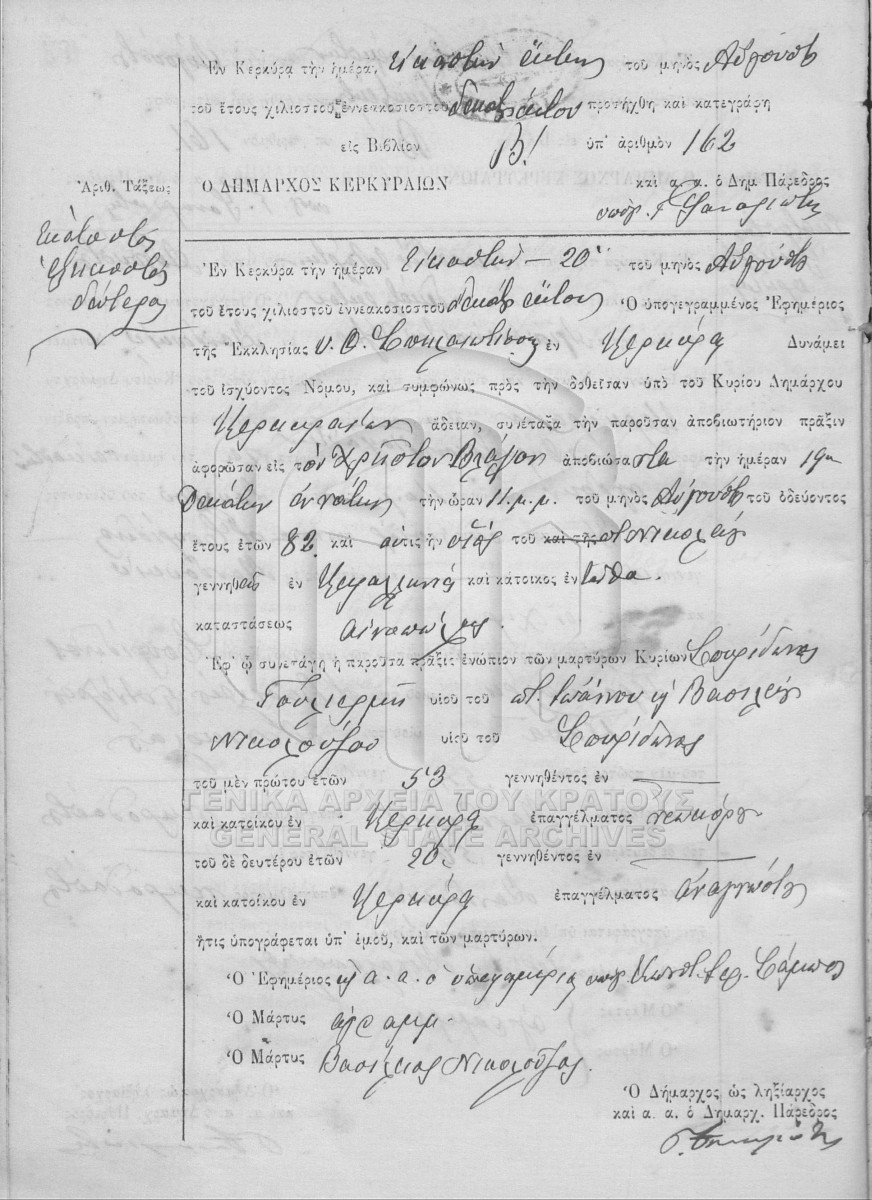 Ἐν Κερκύρα τὴν ἡμέραν Εἰκοστὴν ἕκτην τοῦ μηνὸς Αὐγούστου
τοῦ ἔτους χιλιοστοῦ ἐννεακοσιοστοῦ προσήχθη καὶ κατεγράφη
εἰς Βιβλίον Β! ὑπ' ἀριθμὸν 162
Ἀριθ. Τάξεως
Ο ΔΗΜΑΡΧΟΣ ΚΕΡΚΥΡΑΙΩΝ καὶ α. α. ὁ Δημ Πάρεδρος
Ἑκατοστὸς
ἑξηκοστὸς
δεύτερος
Ἐν Κερκύρα τὴν ἡμέραν Εἰκοστὴν – 20 τοῦ μηνὸς Αὐγούστου
τοῦ ἔτους χιλιοστοῦ ἐννεακοσιοστοῦ δεκάτου ἕκτου Ὁ ὑπογεγραμμένος Ἐφημέριος
τῆς Ἐκκλησίας Υ. Θ. Σπηλαιωτίσσης ἐν Κερκύρᾳ Δυνάμει
τοῦ ἰσχύοντος Νόμου, καὶ συμφώνως πρὸς τὴν δοθεῖσαν ὑπὸ τοῦ Κυρίου Δημάρχου
Κερκυραίων ἄδειαν, συνέταξα τὴν παροῦσαν ἀποβιωτήριον πρᾶξιν
ἀφορῶσαν εἰς τὸν Χρῆστον Βλάχον ἀποβιώσαντα τὴν ἡμέραν 19ην
Δεκάτην ἐννάτην τὴν ὥραν 11. μ. μ. τοῦ μηνὸς Αὐγούστου τοῦ ὁδεύοντος
ἔτους ἐτῶν 82 καὶ οὗτις ἦν υἱὸς τοῦ καὶ τῆς π. Νικολάου
γεννηθεὶς ἐν Κεφαλληνίᾳ καὶ κάτοικος ἐνταῦθα.
καταστάσεως
Ἐφ' ᾧ συνετάγη ἡ παροῦσα πρᾶξις ἐνώπιον τῶν μαρτύρων Κυρίων Σπυρίδωνος
υἱοῦ τοῦ π. Ἰωάννου κ Βασιλείου
Νικολούζου υἱοῦ τοῦ Σπυρίδωνος
τοῦ μὲν πρώτου ἐτῶν 53 γεννηθέντος ἐν
ΓΕΝΙΚΑ ΑΡΧΕΙΑ ΤΟΥ ΚΡΑΤΟΥΣ
καὶ κατοίκου ἐν Κερκύρᾳ ἐπαγγέλματος νεωκόρου
GENERAL STATE ARCHIVES
τοῦ δὲ δευτέρου ἐτῶν 20 γεννηθέντος ἐν
καὶ κατοίκου ἐν Κερκύρᾳ ἐπαγγέλματος ἀναγνώστου
ἥτις ὑπογράφεται ὑπ' ἐμοῦ, καὶ τῶν μαρτύρων.
Ὁ Ἐφημέριος κ α. α. ὁ
Ὁ Μάρτυς
Ὁ Μάρτυς Βασίλειος Νικολούζος.
Ὁ Δήμαρχος ὡς ληξίαρχος
καὶ α. α. ὁ Δημαρχ. Πάρεδρος